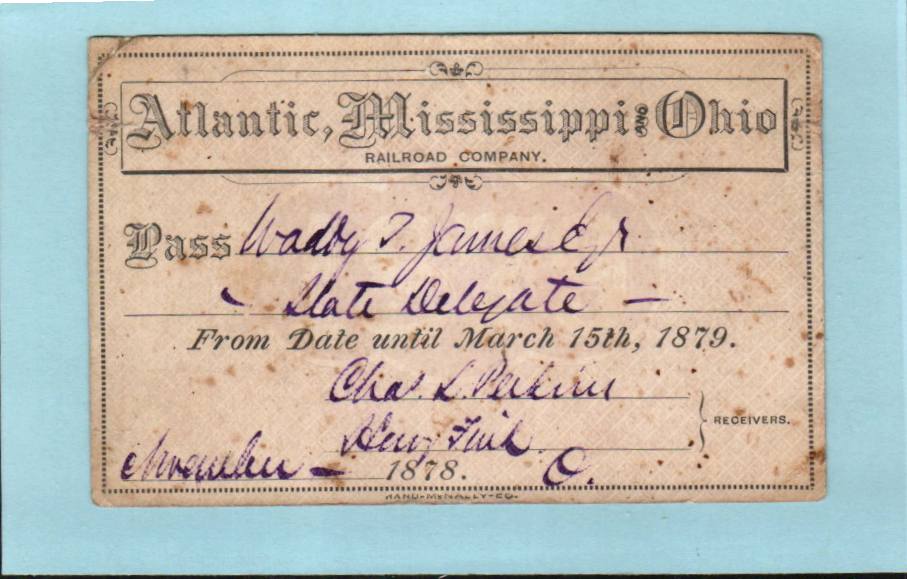 Atlantic, Mississippi AND Ohio
RAILROAD COMPANY.
Pass Wadby T. James Esqr
- State Delegate -
From Date until March 15th, 1879.
Chas. L. Perkins
Henry Fink
RECEIVERS.
November - 1878. O.
RAND-McNALLY-CO.